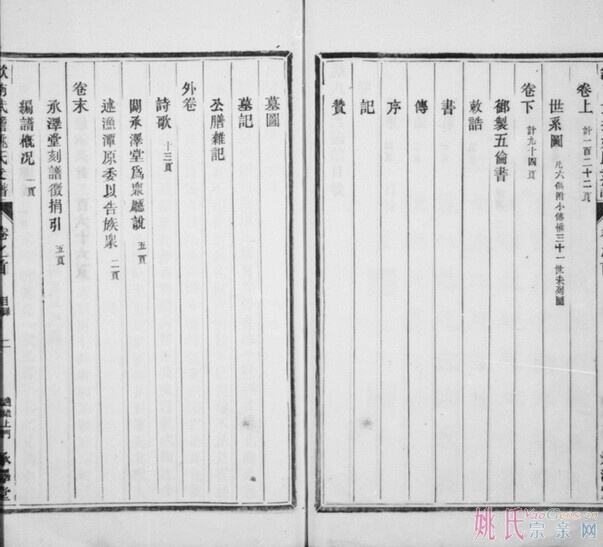 卷上 計一百二十二頁
世系圖 凡六
附小傳
三十一世未列圖
卷下 計九十四頁
御製五倫書
敕誥
書
傳
序
記
贊
墓圖
墓記
公膳雜記
外卷
詩歌 十三頁
闢承澤堂爲衆廳說 五頁
述漁潭原委以告族衆 二頁
卷末
承澤堂刻譜徵捐引 五頁
編譜概況 一頁
卷之首
目錄
二
承澤堂
姚氏宗亲网
YaoGens.cn